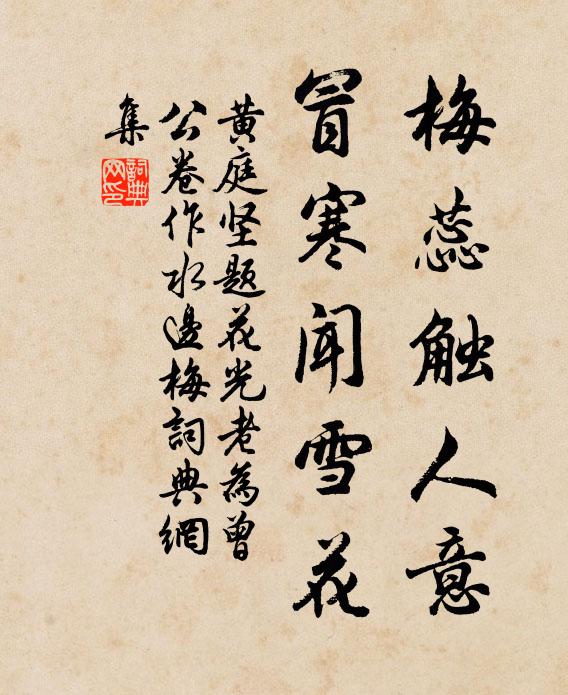 梅蕊触人意
冒寒闻雪花
黄庭坚题花光老為曾
公卷作水邊梅詞典網
集
詞典
网印